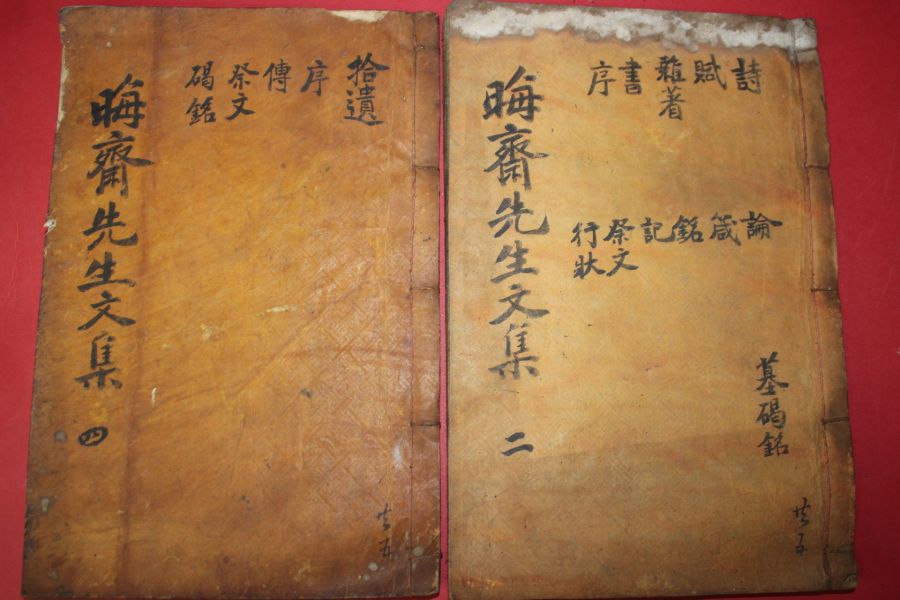 晦齋先生文集 四
拾遺
序
傳
祭文
碣銘
共五
晦齋先生文集 二
詩
賦
雜著
書
序
論
箴
銘
記
祭文
行狀
墓碣銘
共五